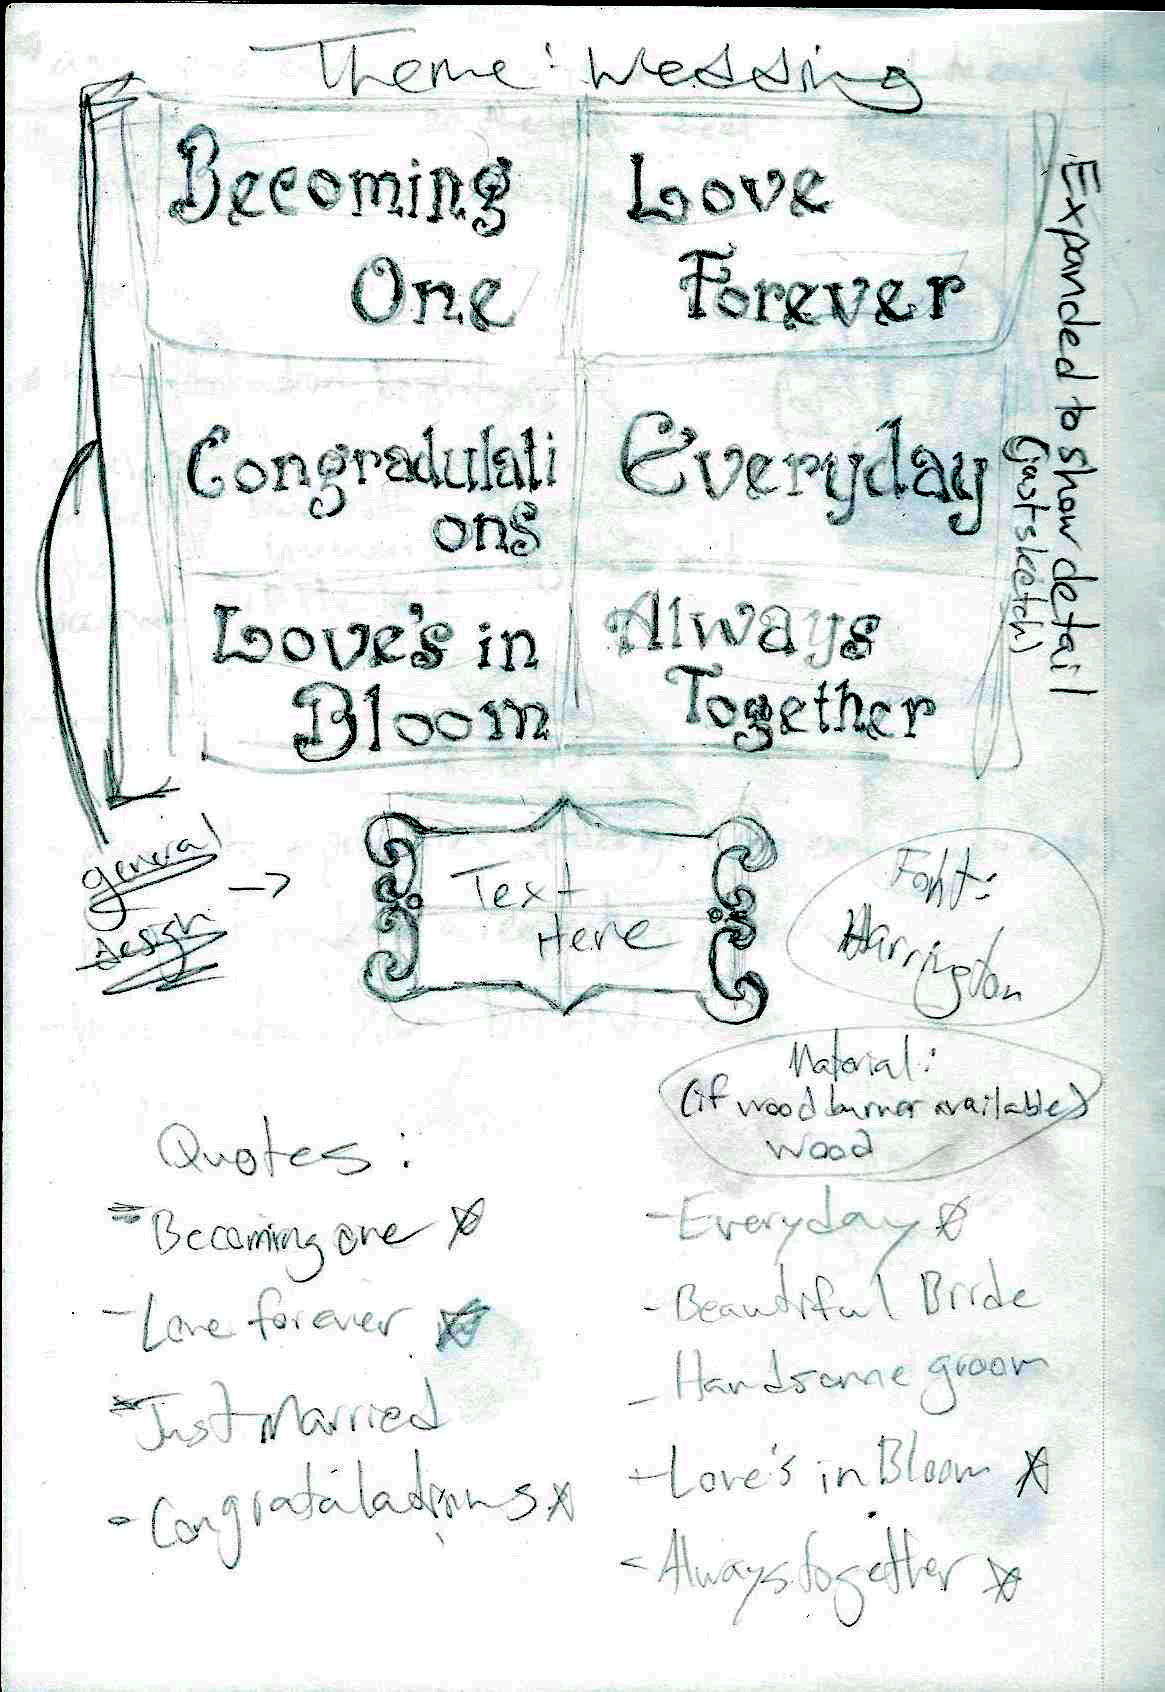 Theme: Wedding
Becoming
One
Love
Forever
Congradulati
ons
Everyday
Love's in
Bloom
Always
Together
Expanded to show detail
(just sketch)
general
design
→
Text
Here
Font:
Harrington
Material:
(if wood burner available)
wood
Quotes:
- Becoming one ☆
- Love forever ☆
- Just Married
- Congratuladions ☆
- Everyday ☆
- Beautiful Bride
- Handsome groom
- Love's in Bloom ☆
- Always together ☆